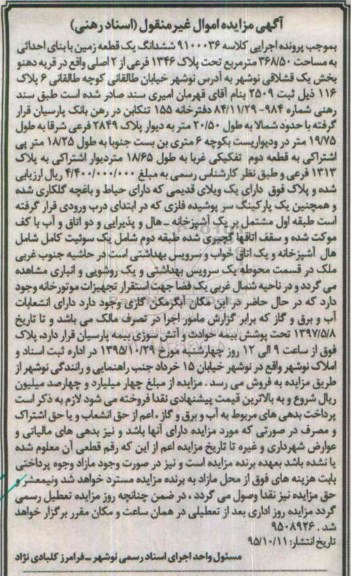 آگهی مزایده اموال غیر منقول (اسناد رهنی)
بموجب پرونده اجرایی کلاسه ۹۱۰۰۰۳۶ ششدانگ یک قطعه زمین با بنای احداثی
به مساحت ۳۶۸/۵۰ مترمربع تحت پلاک ۱۳۴۶ فرعی از ۲ اصلی واقع در قریه دهنو
بخش یک قشلاقی نوشهر به آدرس نوشهر خیابان طالقانی کوچه طالقانی ۶ پلاک
۱۱۶ ذیل ثبت ۲۵۰۹ بنام آقای قهرمان امیری سند صادر شده است طبق سند
رهنی شماره ۹۸۴- ۸۴/۱۱/۲۹ دفترخانه ۱۵۵ تنکابن در رهن بانک پارسیان قرار
گرفته با حدود شمالا به طول ۲۰/۵۰ متر به دیوار پلاک ۲۸۴۹ فرعی شرقا به طول
۱۹/۷۵ متر در ودیواریست بکوچه ۶ متری بن بست جنوبا به طول ۱۸/۲۵ متر پی
اشتراکی به قطعه دوم تفکیکی غربا به طول ۱۸/۶۵ متردیوار اشتراکی به پلاک
۱۳۱۳ فرعی و طبق نظر کارشناس رسمی به مبلغ ۴/۴۰۰/۰۰۰/۰۰۰ ریال ارزیابی
شده و پلاک فوق دارای یک ویلای قدیمی که دارای حیاط و باغچه گلکاری شده
و همچنین یک پارکینگ سر پوشیده فلزی که در ابتدای درب ورودی قرار گرفته
است طبقه اول مشتمل بر یک آشپزخانه ـ هال و پذیرایی و دو اتاق و آب با کف
موکت شده و سقف اتاقها گچبری شده طبقه دوم شامل یک سوئیت کامل شامل
هال آشپزخانه و یک اتاق خواب و سرویس بهداشتی است در حاشیه جنوب غربی
ملک در قسمت محوطه یک سرویس بهداشتی و یک روشویی و انباری مشاهده
می گردد و در ناحیه شمال غربی یک فضا جهت استقرار تجهیزات موتورخانه وجود
دارد که در حال حاضر در این مکان آبگرمکن گازی وجود دارد دارای انشعابات
آب و برق و گاز که برابر گزارش مامور اجرا در تصرف مالک می باشد و تا تاریخ
۱۳۹۷/۵/۸ تحت پوشش بیمه حوادث و آتش سوزی بیمه پارسیان قرار دارد، پلاک
فوق از ساعت ۹ الی ۱۲ روز چهارشنبه مورخ ۱۳۹۵/۱۰/۲۹ در اداره ثبت اسناد و
املاک نوشهر واقع در نوشهر خیابان ۱۵ خرداد جنب راهنمایی و رانندگی نوشهر از
طریق مزایده به فروش می رسد . مزایده از مبلغ چهار میلیارد و چهارصد میلیون
ریال شروع و به بالاترین قیمت پیشنهادی نقدا فروخته می شود لازم به ذکر است
پرداخت بدهی های مربوط به آب و برق و گاز ، اعم از حق انشعاب و یا حق اشتراک
و مصرف در صورتی که مورد مزایده دارای آنها باشد و نیز بدهی های مالیاتی و
عوارض شهرداری و غیره تا تاریخ مزایده اعم از این که رقم قطعی آن معلوم شده
یا نشده باشد بعهده برنده مزایده است و نیز در صورت وجود مازاد وجوه پرداختی
بابت هزینه های فوق از محل مازاد به برنده مزایده مسترد خواهد شد ونیمعشر و
حق مزایده نیز نقدا وصول می گردد ، در ضمن چنانچه روز مزایده تعطیل رسمی
گردد مزایده روز اداری بعد از تعطیلی در همان ساعت و مکان مقرر برگزار خواهد
شد . ۹۵۰۸۹۲۶
تاریخ انتشار: ۹۵/۱۰/۱۱
مسئول واحد اجرای اسناد رسمی نوشهر ـ فرامرز کلبادی نژاد